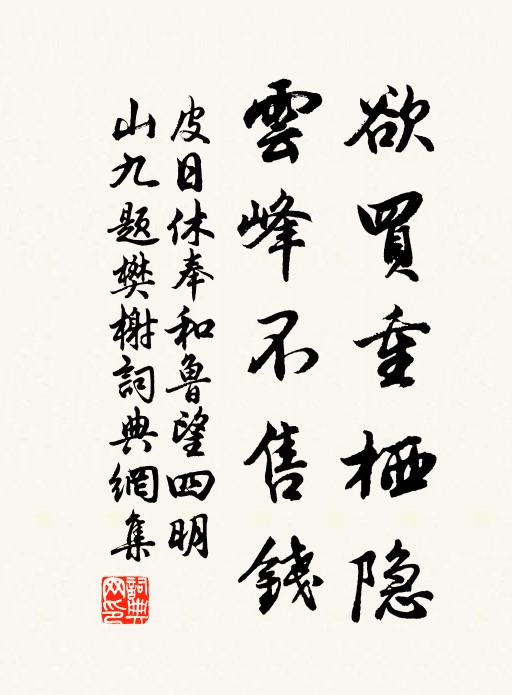 欲買重栖隐
雲峰不售錢
皮日休奉和魯望四明
山九题樊榭詞典網集
詞典網印